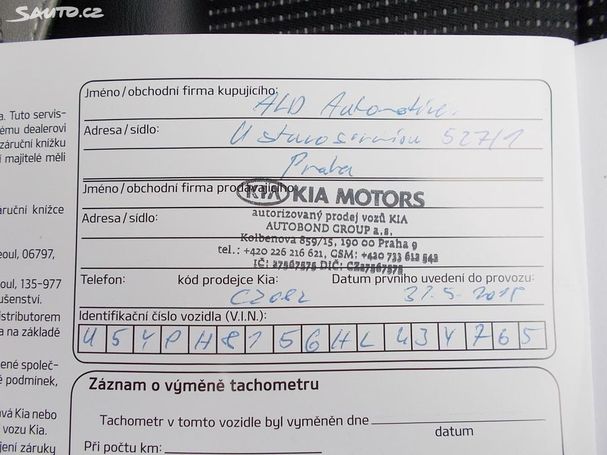 Sauto.cz
Jméno/obchodní firma kupujícího:
ALD Automotive
a. Tuto servis-
Adresa/sídlo:
U stavoservisu 527/1
ému dealerovi
záruční knížku
Praha
í majitelé měli
Jméno/obchodní firma prodávajícího:
KIA KIA MOTORS
autorizovaný prodej vozů KIA
áruční knížce
Adresa/sídlo:
AUTOBOND GROUP a.s.
Kolbenova 859/15, 190 00 Praha 9
tel.: +420 226 216 621, GSM: +420 733 612 542
eoul, 06797,
IČ: 27567575 DIČ: CZ27567575
Telefon:
kód prodejce Kia:
Datum prvního uvedení do provozu:
oul, 135-977
ušenství.
CZ082
31.5.2018
distributorem
Identifikační číslo vozidla (V.I.N.):
a na základě
U5YPH8156HL434765
ené společ-
é podmínek,
Záznam o výměně tachometru
vá Kia nebo
Tachometr v tomto vozidle byl vyměněn dne
vozu Kia.
datum
jení záruky
Při počtu km: